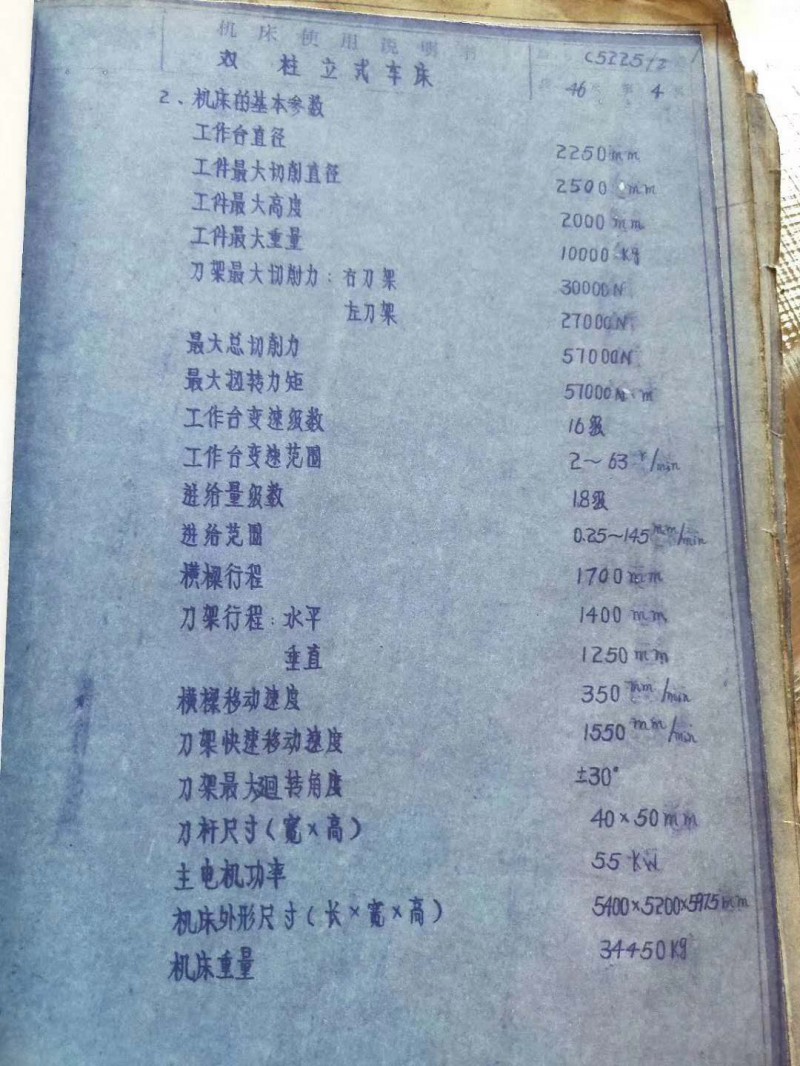 机床使用说明书
双柱立式车床
46 4
2、机床的基本参数
工作台直径 2250mm
工件最大切削直径 2500mm
工件最大高度 2000mm
工件最大重量 10000Kg
刀架最大切削力：右刀架 30000N
左刀架 27000N
最大总切削力 57000N
最大扭转力矩 57000N·m
工作台变速级数 16级
工作台变速范围 2～63 r/min
进给量级数 18级
进给范围 0.25～145 mm/min
横樑行程 1700mm
刀架行程：水平 1400mm
垂直 1250mm
横樑移动速度 350 mm/min
刀架快速移动速度 1550 mm/min
刀架最大廻转角度 ±30°
刀杆尺寸(宽×高) 40×50mm
主电机功率 55KW
机床外形尺寸(长×宽×高) 5400×5200×5975mm
机床重量 34450Kg